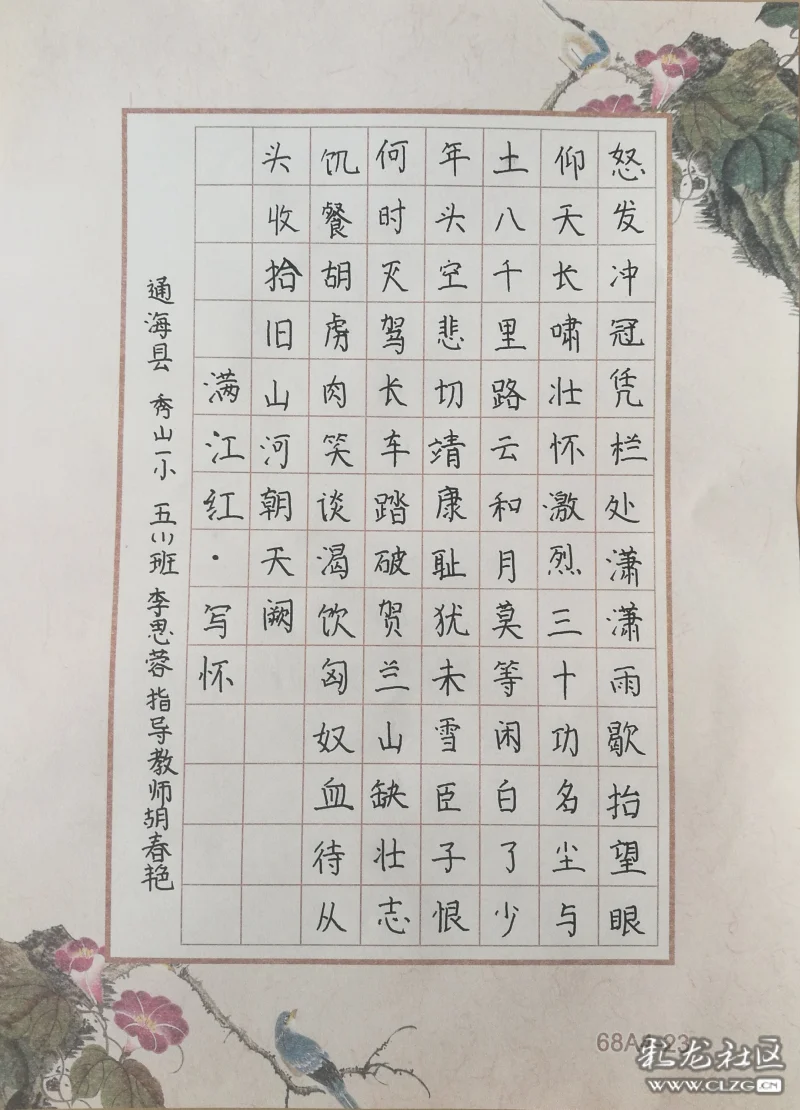 怒发冲冠凭栏处潇潇雨歇抬望眼
仰天长啸壮怀激烈三十功名尘与
土八千里路云和月莫等闲白了少
年头空悲切靖康耻犹未雪臣子恨
何时灭驾长车踏破贺兰山缺壮志
饥餐胡虏肉笑谈渴饮匈奴血待从
头收拾旧山河朝天阙
满江红·写怀
通海县 秀山一小 五(1)班 李思蓉 指导教师胡春艳
彩龙社区
www.CLZG.CN